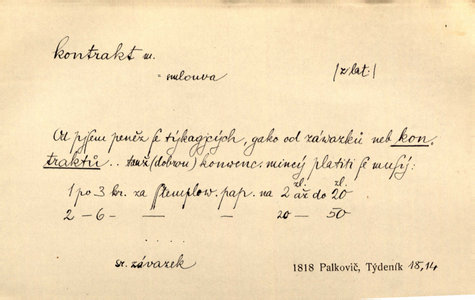 kontrakt m.
= smlouva /z lat:/
Od pjsem peněz se týkagjcých, gako od záwazků neb kon-
traktů .. tauž (dobrou) konvenc. mincý platiti se musý:
zl. zl.
1 po 3 kr. za sstemplow. pap. na 2 až do 20
2 – 6 – — — 20 — 50
. . . .
sr. závazek
1818 Palkovič, Týdeník 18,14